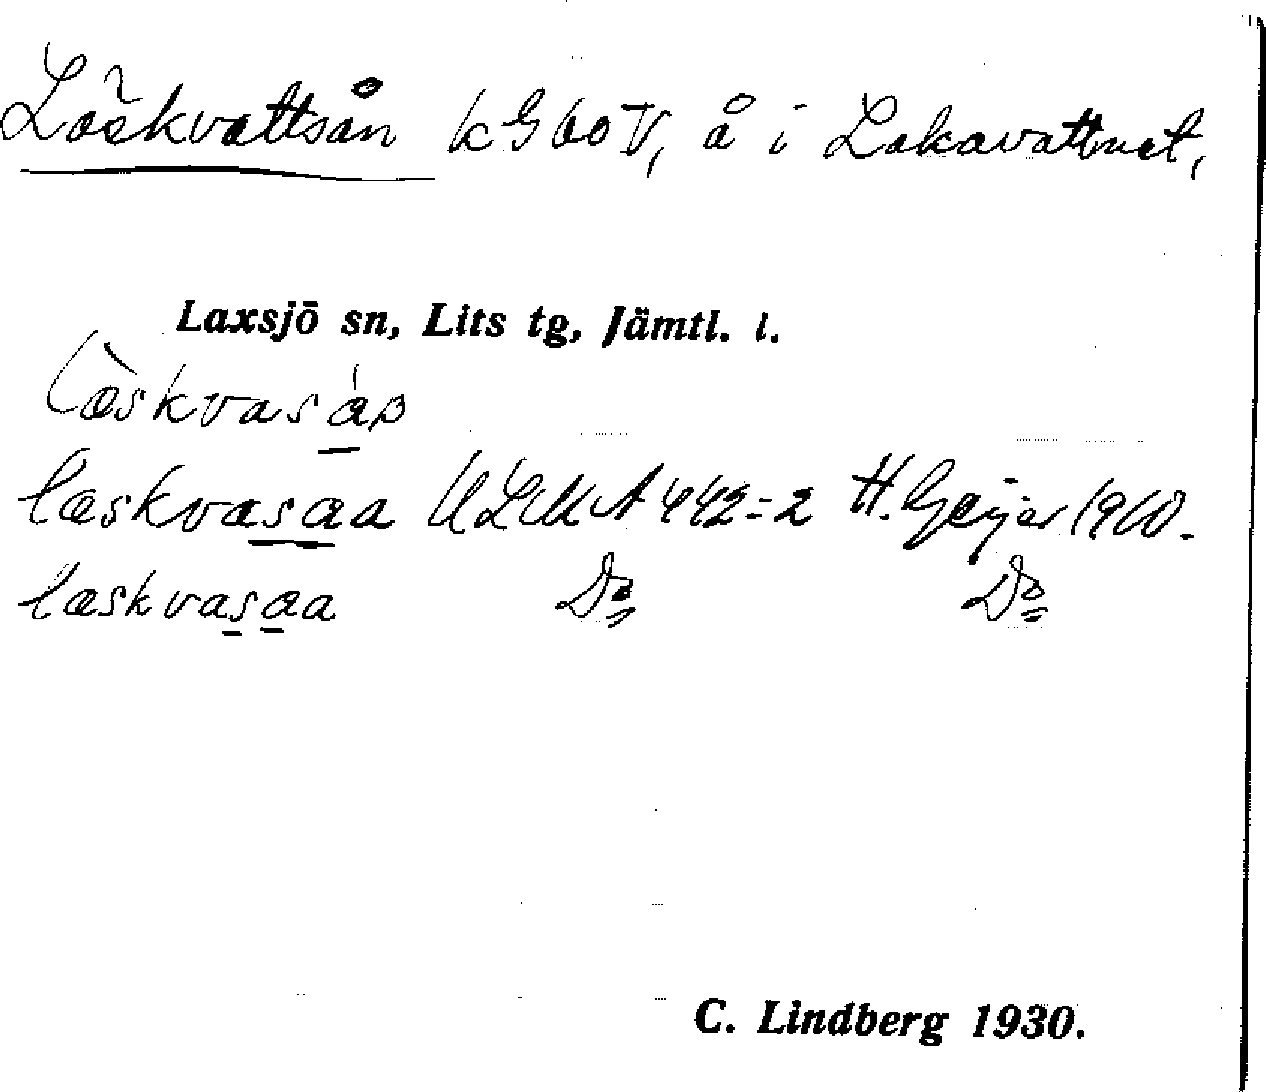 Löskvattsån kG60V, å i Lakavattnet,
Laxsjö sn, Lits tg, Jämtl. l.
læskvasa̲a ULMA 442:2 H. Geijer 1910.
læskvas̲a̲a Do Do
C. Lindberg 1930.